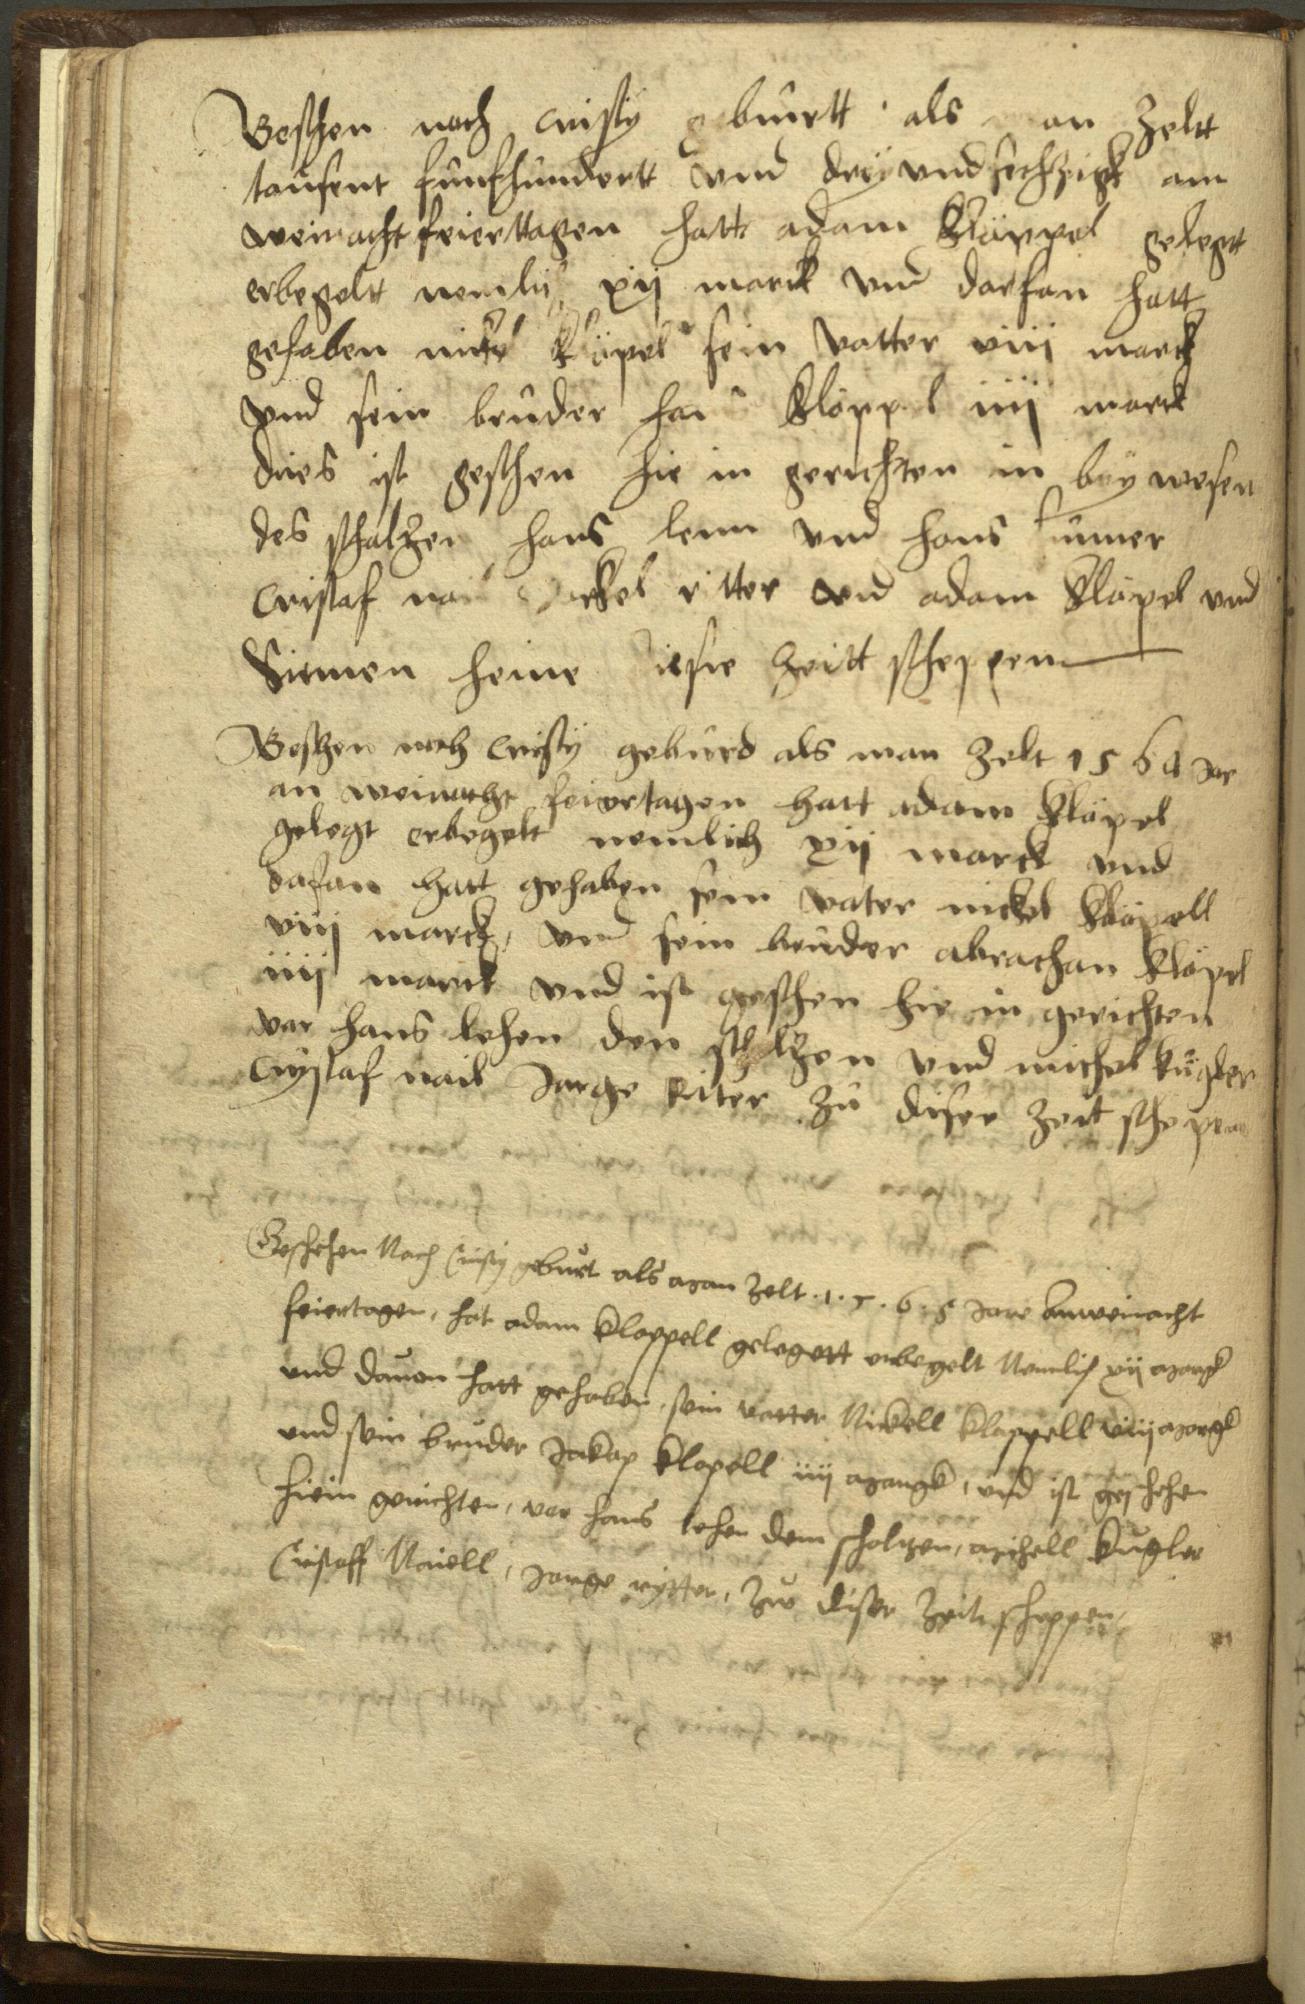 Geschen nach cristy geburtt als man zeltt
tausent funfhundertt vnd dreÿ vnd sechzigk am
weinacht feierttagen hatt adam kläppel gelegtt
erbegeltt nemlich xij marck vnd darfan hatt
gehaben nickel kläpel sein vatter viij marck
vnd sein bruder han kläppel iiij marck
dies ist geschen hie in gerichten in beÿ wesen
des scholtzen hans lenn vnd hans
cristaf nail ritter vnd adam kläpel vnd
Simen heine zeitt scheppen
Geschen nach cristy geburd als man zelt 1564 Jar
an weinacht feiertagen hatt adam kläpel
gelegt erbegelt nemlich xij marck vnd
dafan hatt gehaben sein vater nickel kläpell
viij marck, vnd sein bruder abrachan kläpel
iiij marck vnd ist geschen hie in gerichten
var hans lehen den scholtzen vnd michel kugler
cristaf nail Jarge Riter zu diser zeit schepen
Geschehen Nach Cristy geburt als man zelt .1.5.6.5 Jare anweinacht
feiertagen, hat adam klappell gelegett erbegelt Nemlich xij margk
vnd dauon hatt gehaben, sein vatter Nickell klappell viij margk
vnd sein bruder Jakap klapell iiij margk, vnd ist geschehen
hiein gerichten, vor hans lehen dem scholtzen, michell kugler
Cristoff Naiell, Jorge rytter, zw diser zeit scheppen,